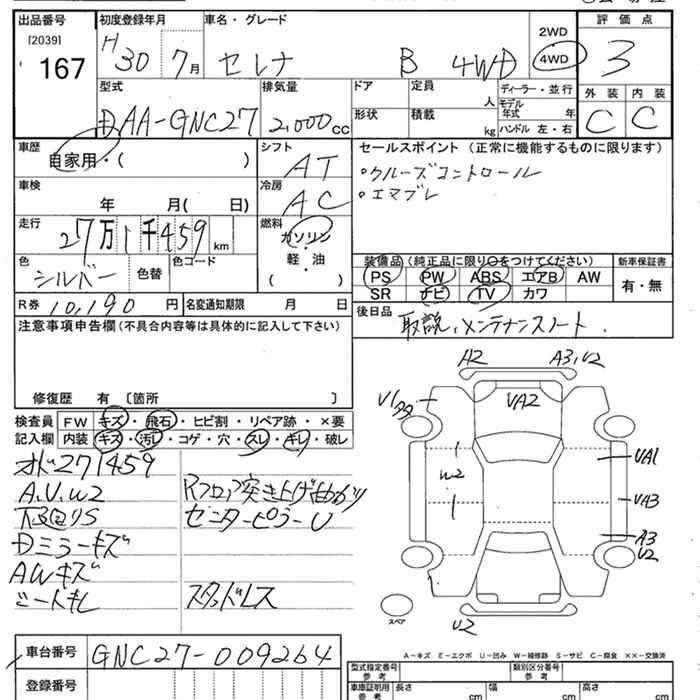 出品番号
[2039]
167
初度登録年月
H30年 7月
車名・グレード
セレナ B 4WD
2WD
4WD
評価点
3
外装 内装
C C
型式
DAA-GNC27
排気量
2,000cc
ドア
形状
定員 人
積載 kg
ディーラー・並行
モデル年式 年
ハンドル 左・右
車歴
自家用・( )
シフト
AT
車検
年 月( 日)
冷房
AC
走行
27万1千459km
燃料
ガソリン
・
軽・油
( )
色
シルバー
色替
色コード
R券 10,190円
名変通知期限 月 日
セールスポイント (正常に機能するものに限ります)
・クルーズコントロール
・エマブレ
装備品 (純正品に限り○をつけてください)
PS PW ABS エアB AW
SR ナビ TV カワ
新車保証書
有・無
後日品
取説、メンテナンスノート.
注意事項申告欄(不具合内容等は具体的に記入して下さい)
修復歴 有 [箇所 ]
検査員記入欄
FW キズ・飛石・ヒビ割・リペア跡・×要
内装 キズ・汚レ・コゲ・穴・スレ・キレ・破レ
オド271459
A.U.W2
下回りS
Dミラーキズ
AWキズ
シートキレ
Rフロア突き上げ曲がり
センターピラーU
スタッドレス
A2
A3,U2
UA2
W2
UA1
UA3
A3
U2
U2
スペア
A-キズ E-エクボ U-凹み W-補修跡 S-サビ C-腐食 XX-交換済
車台番号
GNC27-009264
登録番号
型式指定番号
参考
類別区分番号
参考
車庫証明用
参考
長さ cm
幅 cm
高さ cm